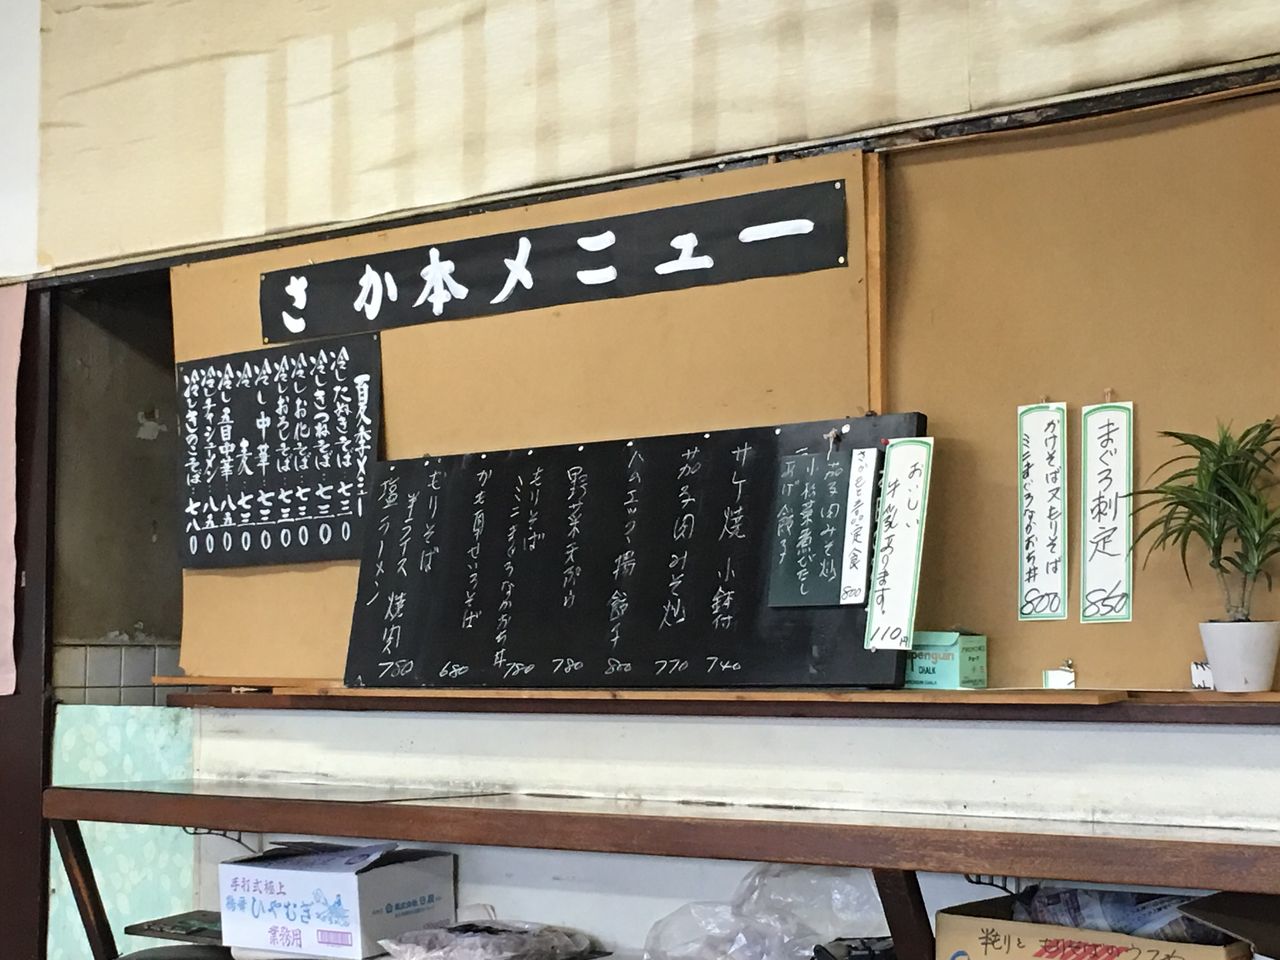 さか本メニュー
夏季メニュー
冷したぬきそば 七三〇
冷しきつねそば 七三〇
冷しお化そば 七三〇
冷しおろしそば 七三〇
冷し中華 七三〇
冷し五目中華 八五〇
冷しチャシューメン 八五〇
冷しきのこそば 七八〇
おいしい
牛乳あります。
110円
さかもと名品定食 800
茄子肉みそ炒
小松菜煮びたし
あげ餃子
サケ焼 小鉢付 740
茄子肉みそ炒 770
ハムエッグ 揚餃子 800
野菜天ぷら 780
もりそば
ミニまぐろなかおち丼 780
かも南せいろそば 680
もりそば
半ライス 焼肉 750
塩ラーメン
まぐろ刺定 850
かけそば又もりそば
ミニまぐろなかおち丼 800
penguin
CHALK
手打式極上
ひやむぎ
業務用